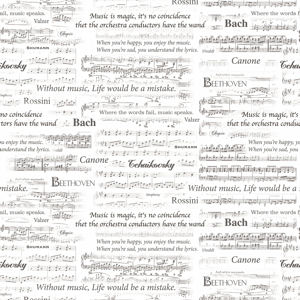 Rossini
Music is magic, it's no coincidence
that the orchestra conductors have the wand
Where the words fail, music speaks.
Bach
Valzer
Chopin
When you're happy, you enjoy the music.
When you're sad, you understand the lyrics.
SCHUMANN
Canone
Tchaikovsky
BEETHOVEN
Without music, Life would be a mistake.
Rossini
no coincidence
ctors have the wand
Where the words fail, music speaks.
Bach
Valzer
Chopin
enjoy the music.
understand the lyrics.
When you're happy, you enjoy the music.
When you're sad, you understand the lyrics.
SCHUMANN
Canone
Tchaikovsky
BEETHOVEN
mistake.
Without music, Life would be a mistake.
Rossini
Music is magic, it's no coincidence
that the orchestra conductors have the wand
fail, music speaks.
Where the words
Bach
Valzer
Chopin
When you're happy, you enjoy the music.
When you're sad, you understand the lyrics.
SCHUMANN
Canone
BEETHOVEN
Without music, Life would be a mistake.